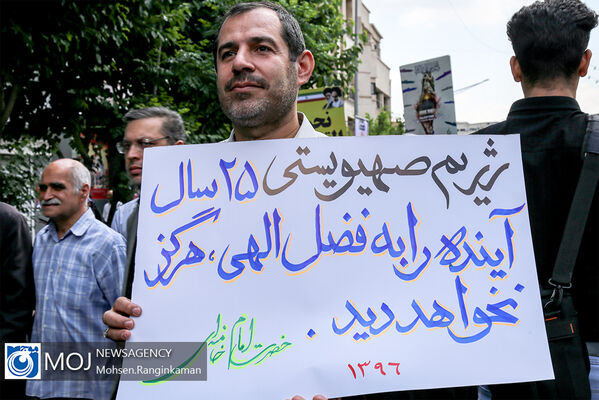 رژیم صهیونیستی ۲۵ سال
آینده را به فضل الهی، هرگز
نخواهد دید .
حضرت امام خامنه ای
۱۳۹۶
MOJ NEWSAGENCY
Mohsen.Ranginkaman